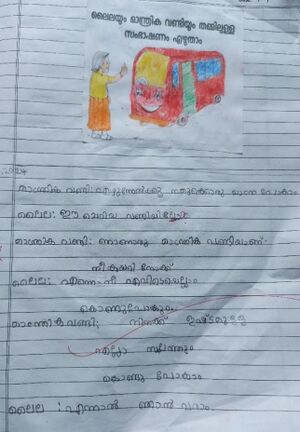 ലൈലയും മാന്ത്രിക വണ്ടിയും തമ്മിലുള്ള
സംഭാഷണം എഴുതാം
മാന്ത്രിക വണ്ടി: നമുക്കൊരു യാത്ര പോകാം
ലൈല: ഈ ചെറിയ വണ്ടിയിലോ
മാന്ത്രിക വണ്ടി: ഞാനൊരു മാന്ത്രിക വണ്ടിയാണ്
നീ കയറി നോക്ക്
ലൈല: എന്നെ നീ എവിടെയെല്ലാം
കൊണ്ടുപോകും
മാന്ത്രികവണ്ടി: നിനക്ക് ഇഷ്ടമുള്ള
എല്ലാ സ്ഥലത്തും
കൊണ്ടു പോകാം
ലൈല : എന്നാൽ ഞാൻ വരാം.